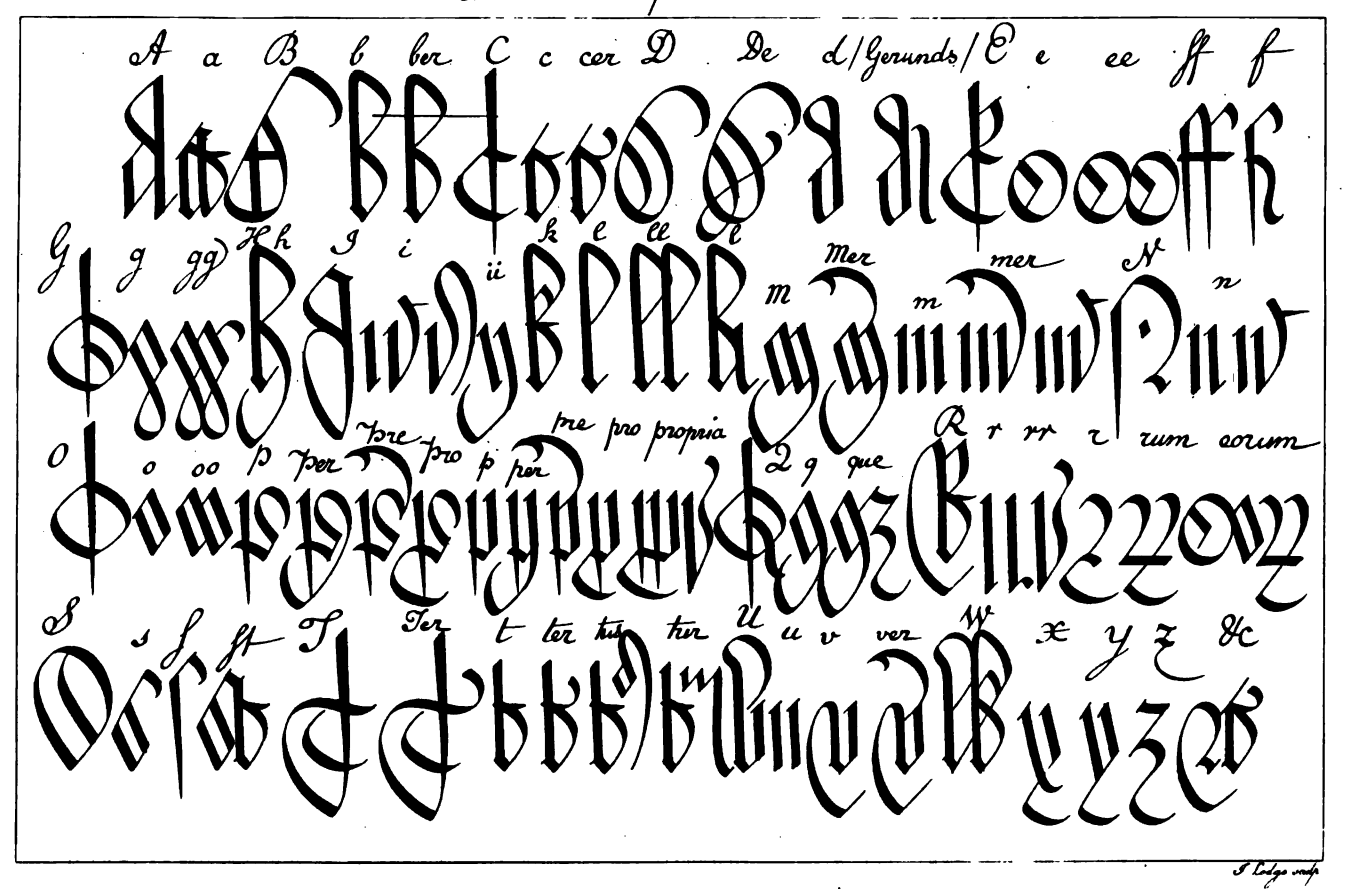 A a B b ber C c cer D De d/Gerunds/ E e ee ff f
G g gg H h I i ii k l ll M Mer m mer N n
O o oo P Per Pre Pro p per pre pro propria Q q que R r rr r rum eorum
S s f ft T Ter t ter tus tur U u v ver W x y z &c